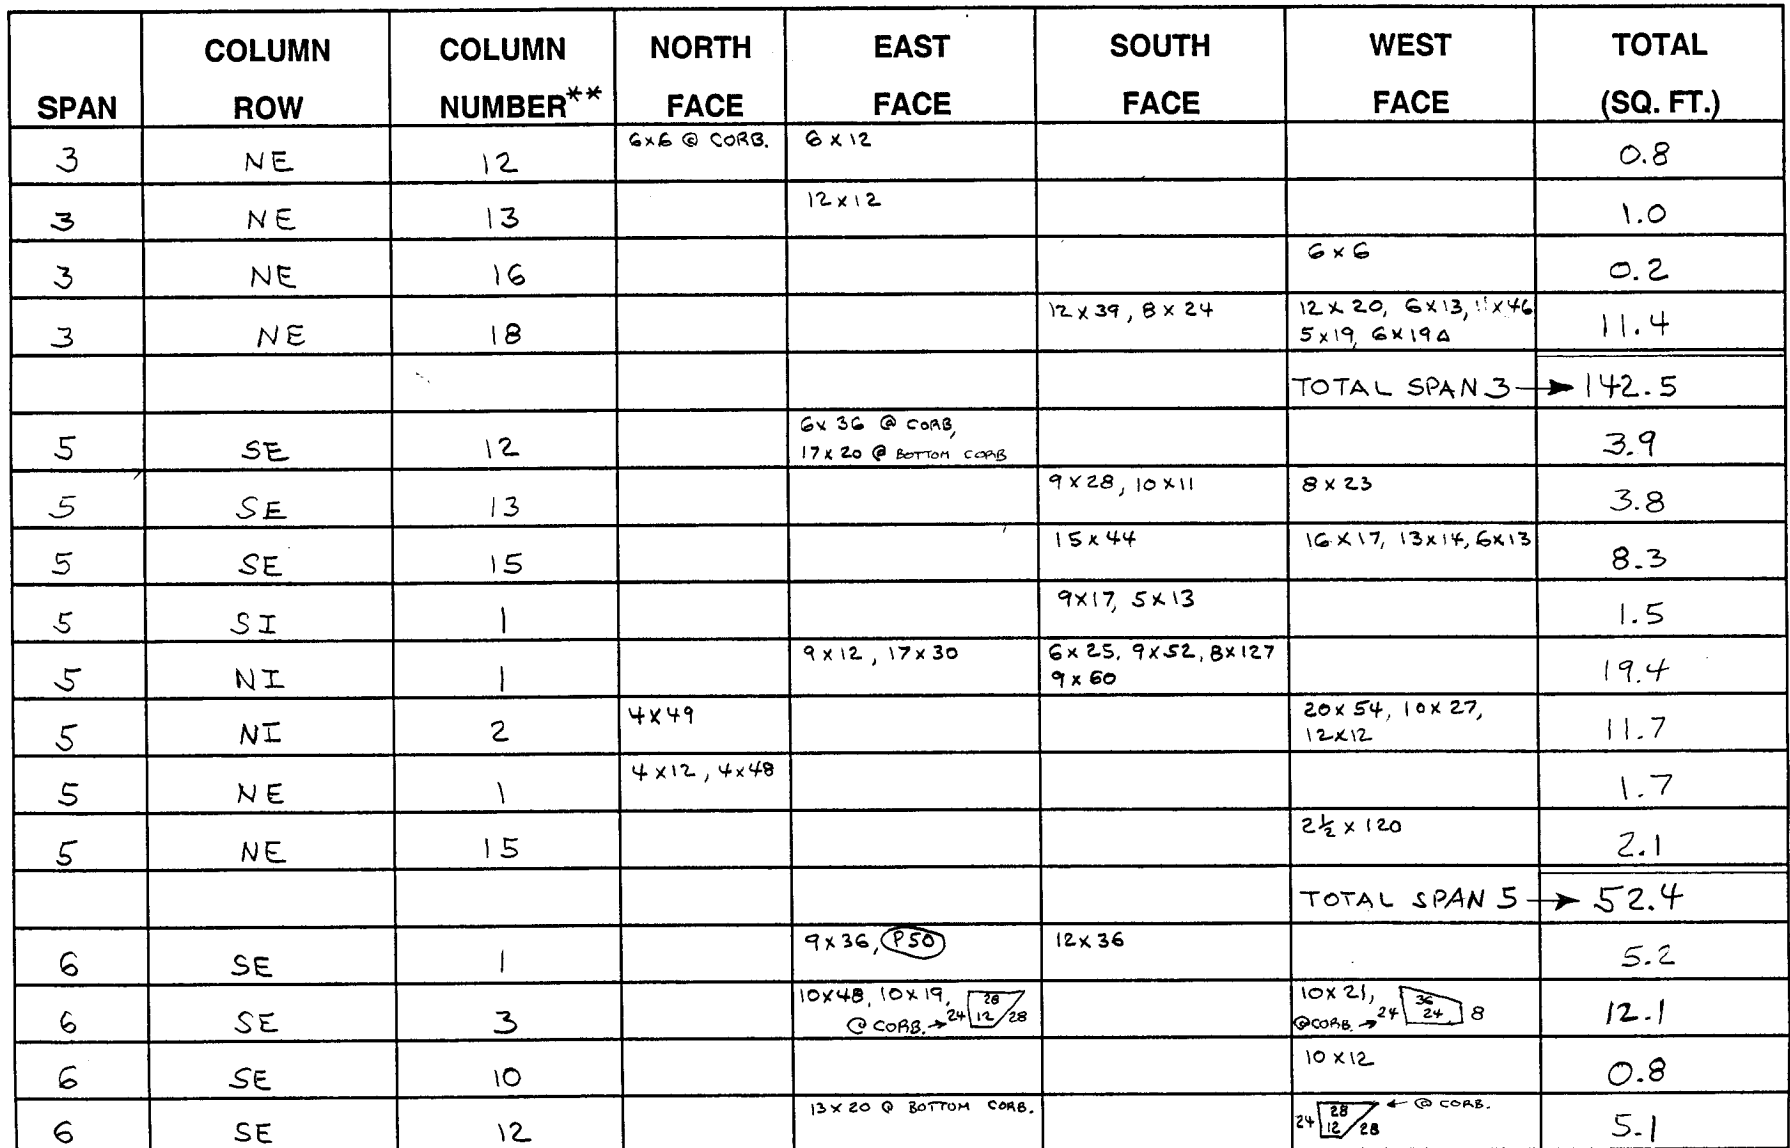 SPAN COLUMN ROW COLUMN NUMBER** NORTH FACE EAST FACE SOUTH FACE WEST FACE TOTAL (SQ. FT.)
3 NE 12 6x6 @ CORB. 6 x 12 0.8
3 NE 13 12x12 1.0
3 NE 16 6 x 6 0.2
3 NE 18 12 x 39, 8 x 24 12 x 20, 6x13, 11x46
5x19, 6x19Δ 11.4
TOTAL SPAN 3 → 142.5
5 SE 12 6x 36 @ CORB,
17 x 20 @ BOTTOM CORB 3.9
5 SE 13 9 x 28, 10 x 11 8 x 23 3.8
5 SE 15 15 x 44 16 x 17, 13x14, 6x13 8.3
5 SI 1 9x17, 5x13 1.5
5 NI 1 9 x 12, 17 x 30 6 x 25, 9x52, 8x127
9 x 60 19.4
5 NI 2 4 x 49 20 x 54, 10 x 27,
12x12 11.7
5 NE 1 4 x 12, 4x48 1.7
5 NE 15 2½ x 120 2.1
TOTAL SPAN 5 → 52.4
6 SE 1 9 x 36, P50 12 x 36 5.2
6 SE 3 10x48, 10x19, 28 10 x 21, 36 12.1
@ CORB. → 24 12 28 @CORB. → 24 24 8
6 SE 10 10 x 12 0.8
6 SE 12 13 x 20 @ BOTTOM CORB. 28 ← @ CORB. 5.1
24 12 28